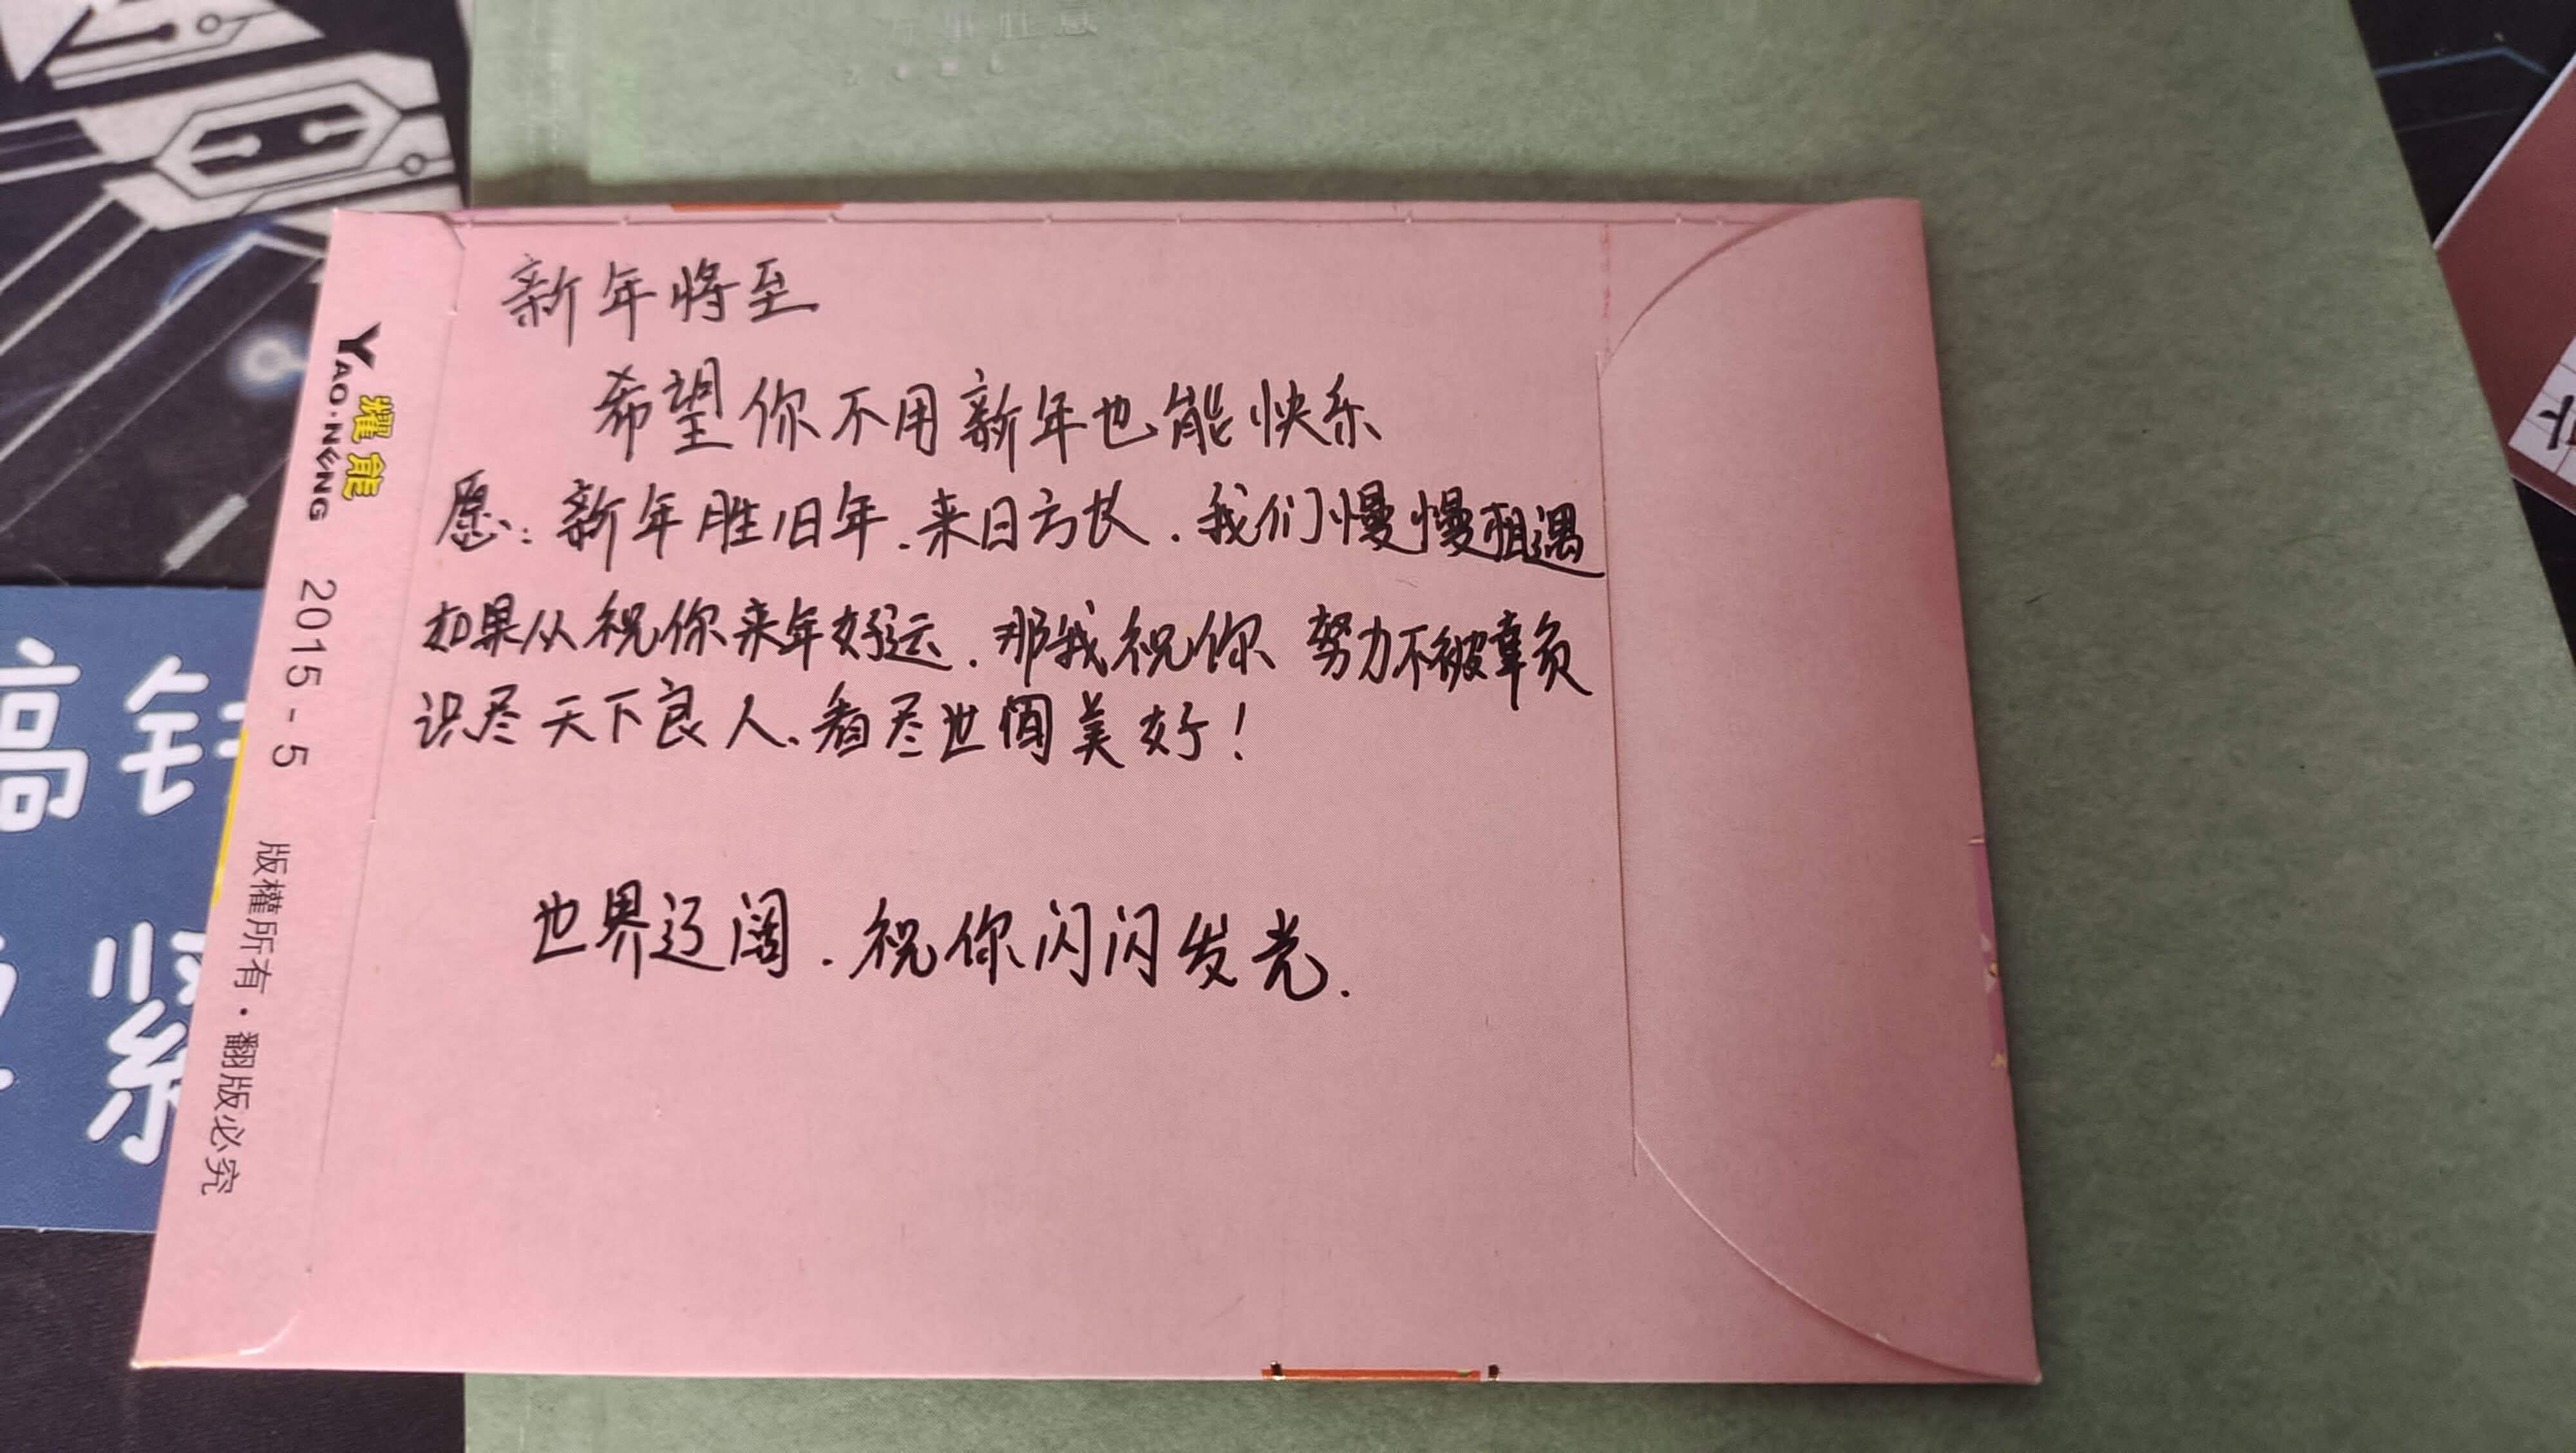 新年将至
希望你不用新年也能快乐
愿:新年胜旧年.来日方长.我们慢慢相遇
如果从祝你来年好运.那我祝你 努力不被辜负
识尽天下良人、看尽世间美好!
世界辽阔.祝你闪闪发光.
YAO·NENG 耀能 2015-5 版權所有·翻版必究
搞钱
要紧